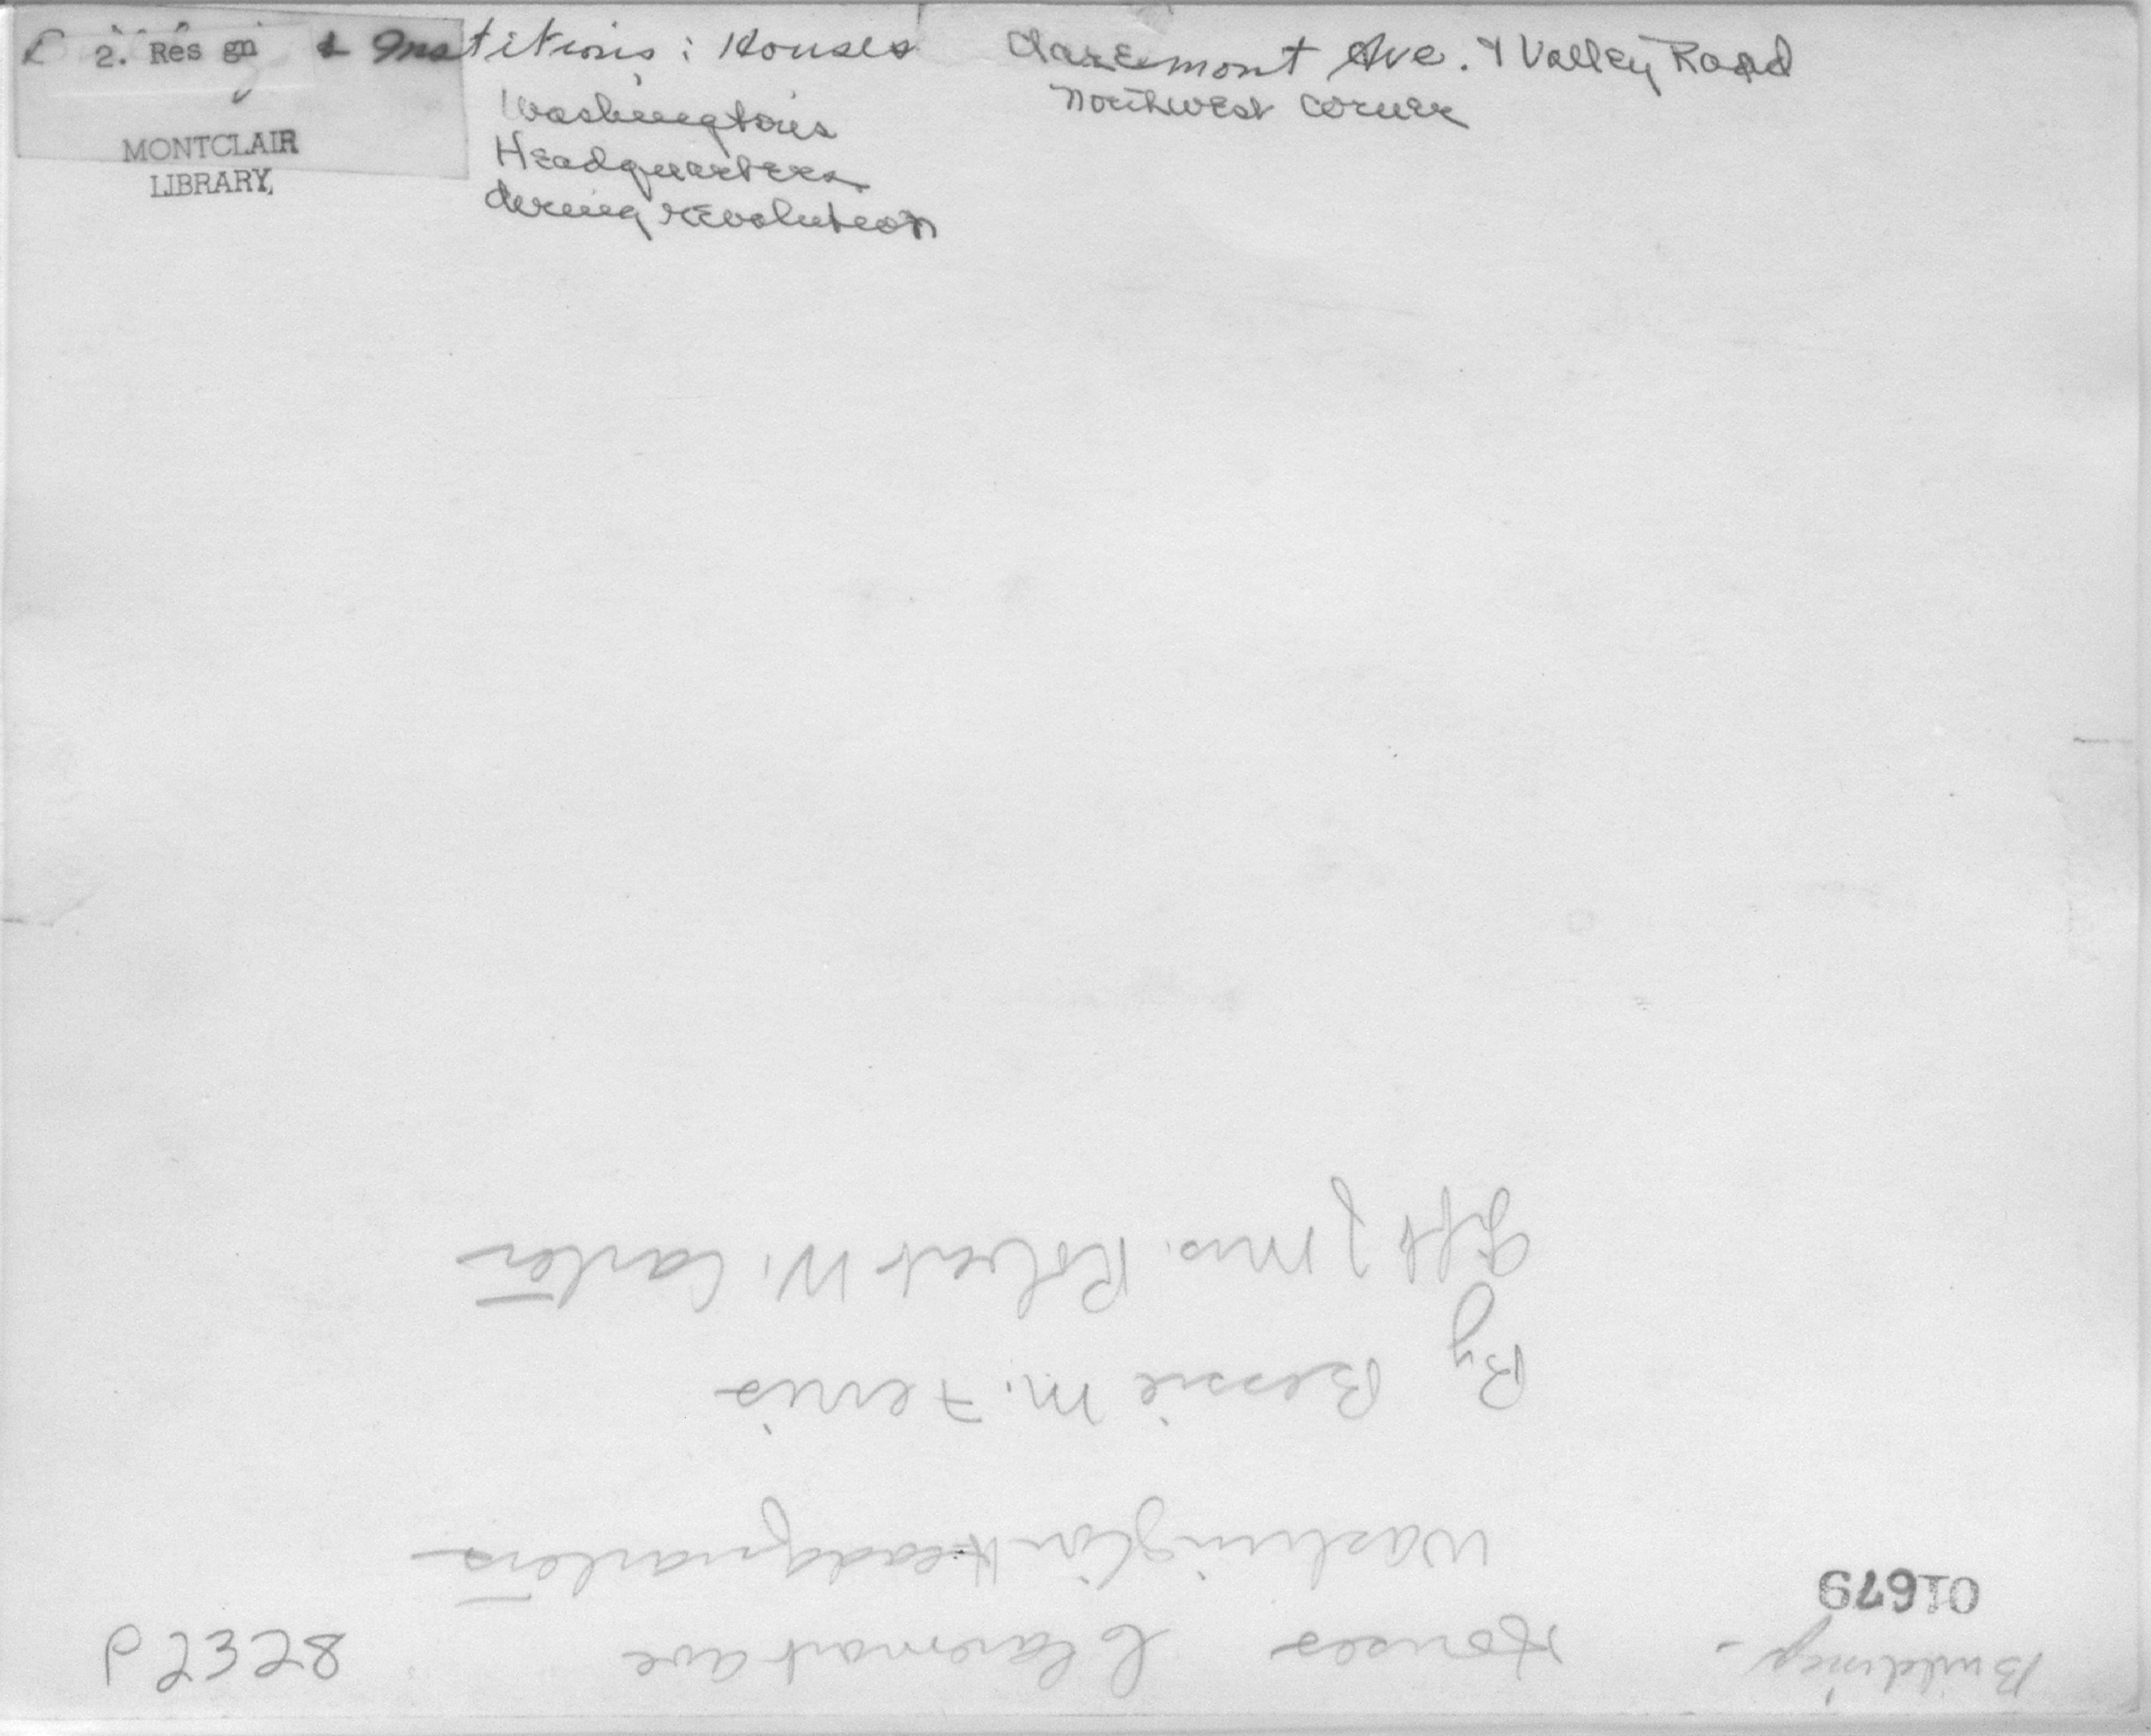 2. Res gn & Institions : Houses Claremont Ave. & Valley Road
Northwest corner
Washington's
Headquarters
during revolution
MONTCLAIR
LIBRARY,
P2328
Buildings - Houses Claremont ave
01679
Washington Headquarters
By Bessie M. Ferris
Gift of Mrs. Robert W. Carter